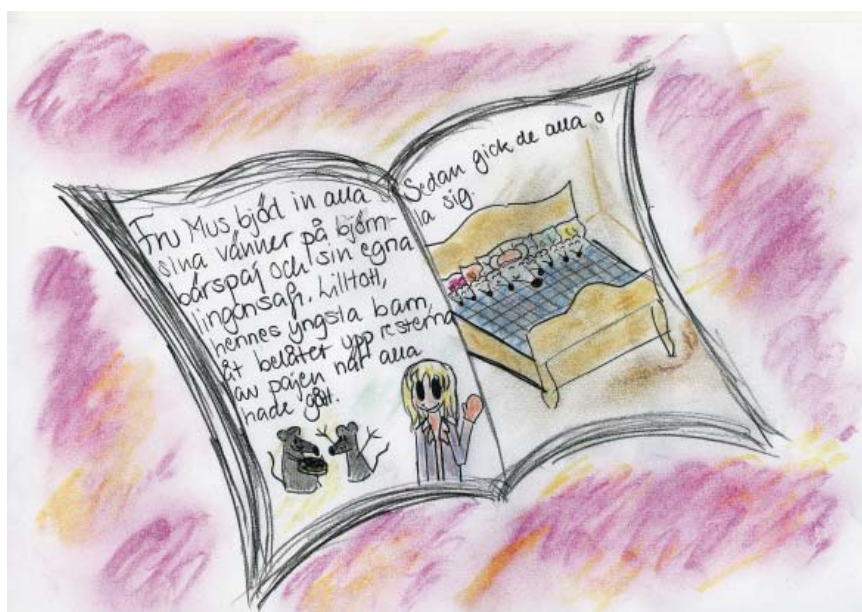 Fru Mus bjöd in alla
sina vänner på björn-
bärspaj och sin egna
lingonsaft. Lilltott,
hennes yngsta barn,
åt belåtet upp resterna
av pajen när alla
hade gått.
Sedan gick de alla o
la sig.